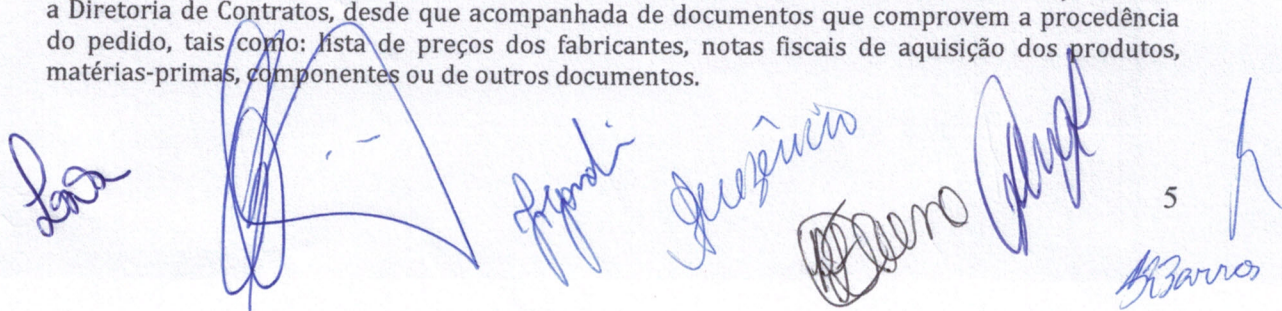 a Diretoria de Contratos, desde que acompanhada de documentos que comprovem a procedência
do pedido, tais como: lista de preços dos fabricantes, notas fiscais de aquisição dos produtos,
matérias-primas, componentes ou de outros documentos.
5
Barros